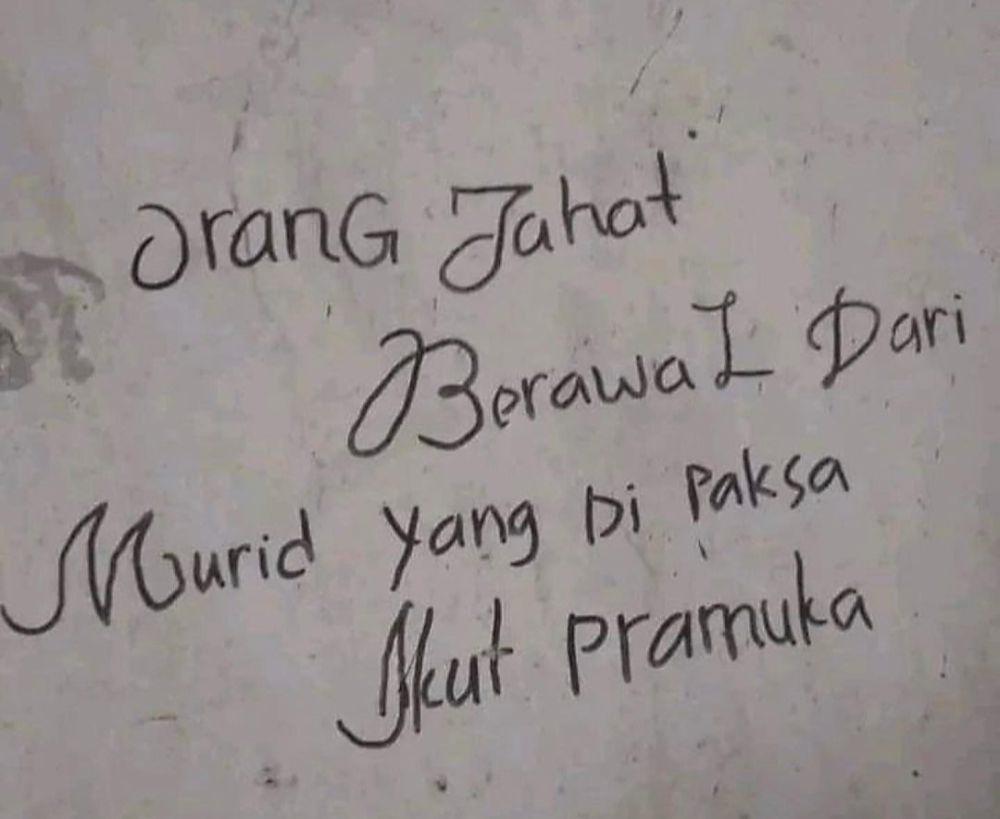 OranG Jahat
BerawaL Dari
Murid Yang Di Paksa
Ikut Pramuka